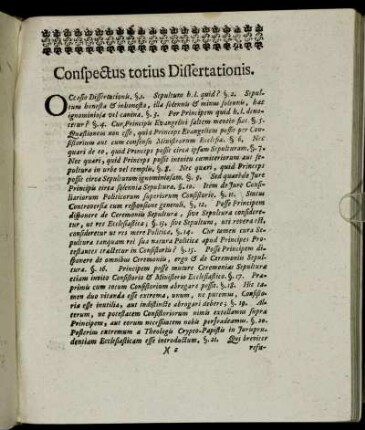 Conspectus totius Dissertationis.
OCcasio Dissertationis, §. 1. Sepultura h. l. quid? §. 2. Sepul-
tura honesta & inhonesta, illa solennis & minus solennis, hæc
ignominiosa vel canina. §. 3. Per Principem quid h. l. deno-
tetur? §. 4. Cur Principis Evangelici saltem mentio fiat. §. 5.
Quæstionem non esse, quid Princeps Evangelicus possit per Con-
sistorium aut cum consensu Ministrorum Ecclesiæ. §. 6. Nec
quæri de eo, quid Princeps possit circa ipsam Sepulturam. §. 7.
Nec quæri, quid Princeps possit invitis cœmiteriorum aut se-
pultura in urbe vel templo, §. 8. Nec quæri, quid Princeps
possit circa Sepulturam ignominiosam. §. 9. Sed quæri de Jure
Principis circa solennia Sepulturæ. §. 10. Item de Jure Consi-
liariorum Politicorum superiorum Consistorii. §. 11. Status
Controversiæ cum responsione generali, §. 12. Posse Principem
disponere de Ceremoniis Sepulturæ, sive Sepultura considere-
tur, ut res Ecclesiastica; §. 13. sive Sepultura, uti revera est,
consideretur ut res mere Politica, §. 14. Cur tamen cura Se-
pulturæ tanquam rei sua natura Politicæ apud Principes Pro-
testantes tractetur in Consistoriis? §. 15. Posse Principem di-
sponere de omnibus Ceremoniis, ergo & de Ceremoniis Sepul-
turæ. §. 16. Principem posse mutare Ceremonias Sepulturæ
etiam invito Consistorio & Ministerio Ecclesiastico. §. 17. Præ-
primis cum totum Consistorium abrogare possit. §. 18. Hic ta-
men duo vitanda esse extrema, unum, ne putemus, Consisto-
ria esse inutilia, aut indistincte abrogari debere; §. 19. Al-
terum, ne potestatem Consistoriorum nimis extollamus supra
Principem, aut eorum necessitatem nobis persuadeamus. §. 20.
Posterius extremum a Theologis Crypto-Papisticis in Jurispru-
dentiam Ecclesiasticam esse introductum, §. 21. Quos breviter
)( 2 refu-